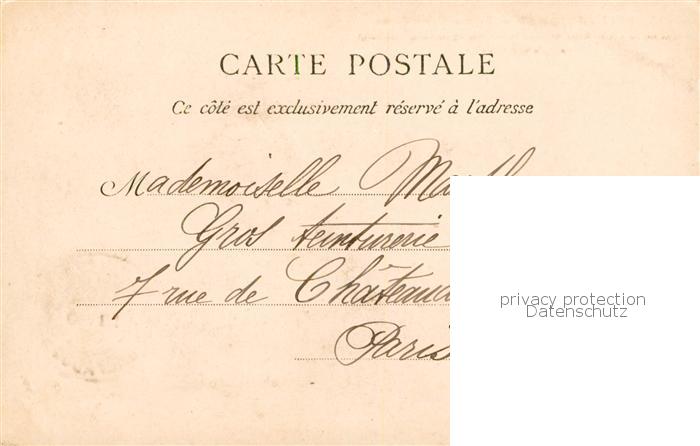 CARTE POSTALE
Ce côté est exclusivement réservé à l'adresse
Mademoiselle
Gros teinturerie
7 rue de
Paris
privacy protection
Datenschutz